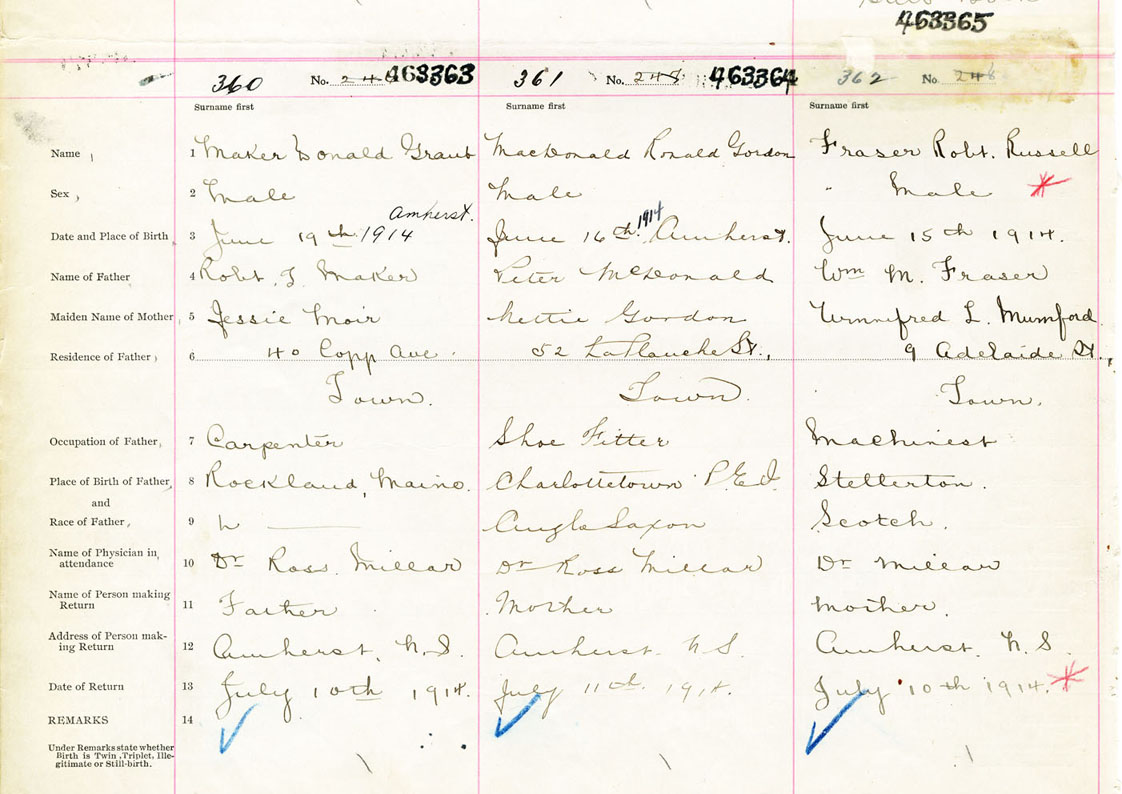 463365
360 No. 248 463363 361 No. 248 463364 362 No. 248
Surname first Surname first Surname first
Name 1 Maker Donald Grant MacDonald Ronald Gordon Fraser Robt. Russell
Sex 2 Male Male Male
Amherst. 1914
Date and Place of Birth 3 June 19th 1914 June 16th. Amherst. June 15th 1914.
Name of Father 4 Robt. J. Maker Peter McDonald Wm M. Fraser
Maiden Name of Mother 5 Jessie Moir Nettie Gordon Winnifred L. Mumford
Residence of Father 6 40 Copp Ave. 52 LaPlanche St., 9 Adelaide St.,
Town. Town. Town.
Occupation of Father 7 Carpenter Shoe Fitter Machinest
Place of Birth of Father 8 Rockland, Maine. Charlottetown P.E.I. Stellerton.
and
Race of Father 9 Anglo Saxon Scotch.
Name of Physician in
attendance 10 Dr Ross Millar Dr Ross Millar Dr Millar
Name of Person making
Return 11 Father Mother Mother.
Address of Person mak-
ing Return 12 Amherst, N.S. Amherst. N.S. Amherst. N.S.
Date of Return 13 July 10th 1914. July 11th. 1914. July 10th 1914.
REMARKS 14
Under Remarks state whether
Birth is Twin, Triplet, Ille-
gitimate or Still-birth.